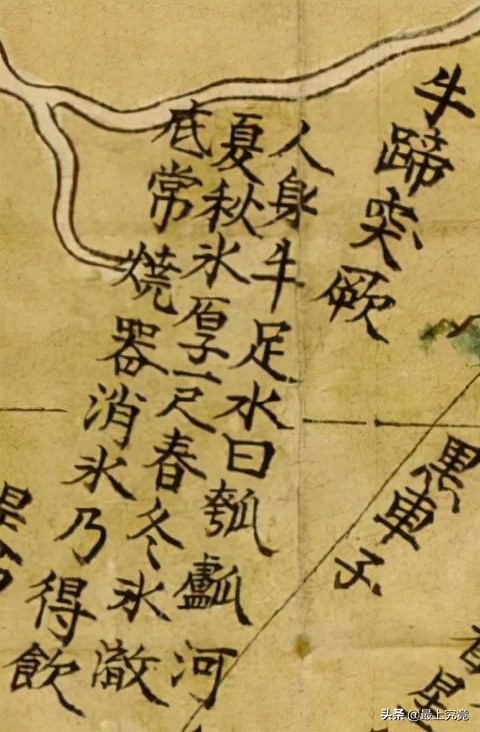 牛蹄突厥
人身牛足水曰瓠𤬛河
夏秋氷厚一尺春冬氷澈
底常燒器消氷乃得飲
黒車子
头条 @最上究竟